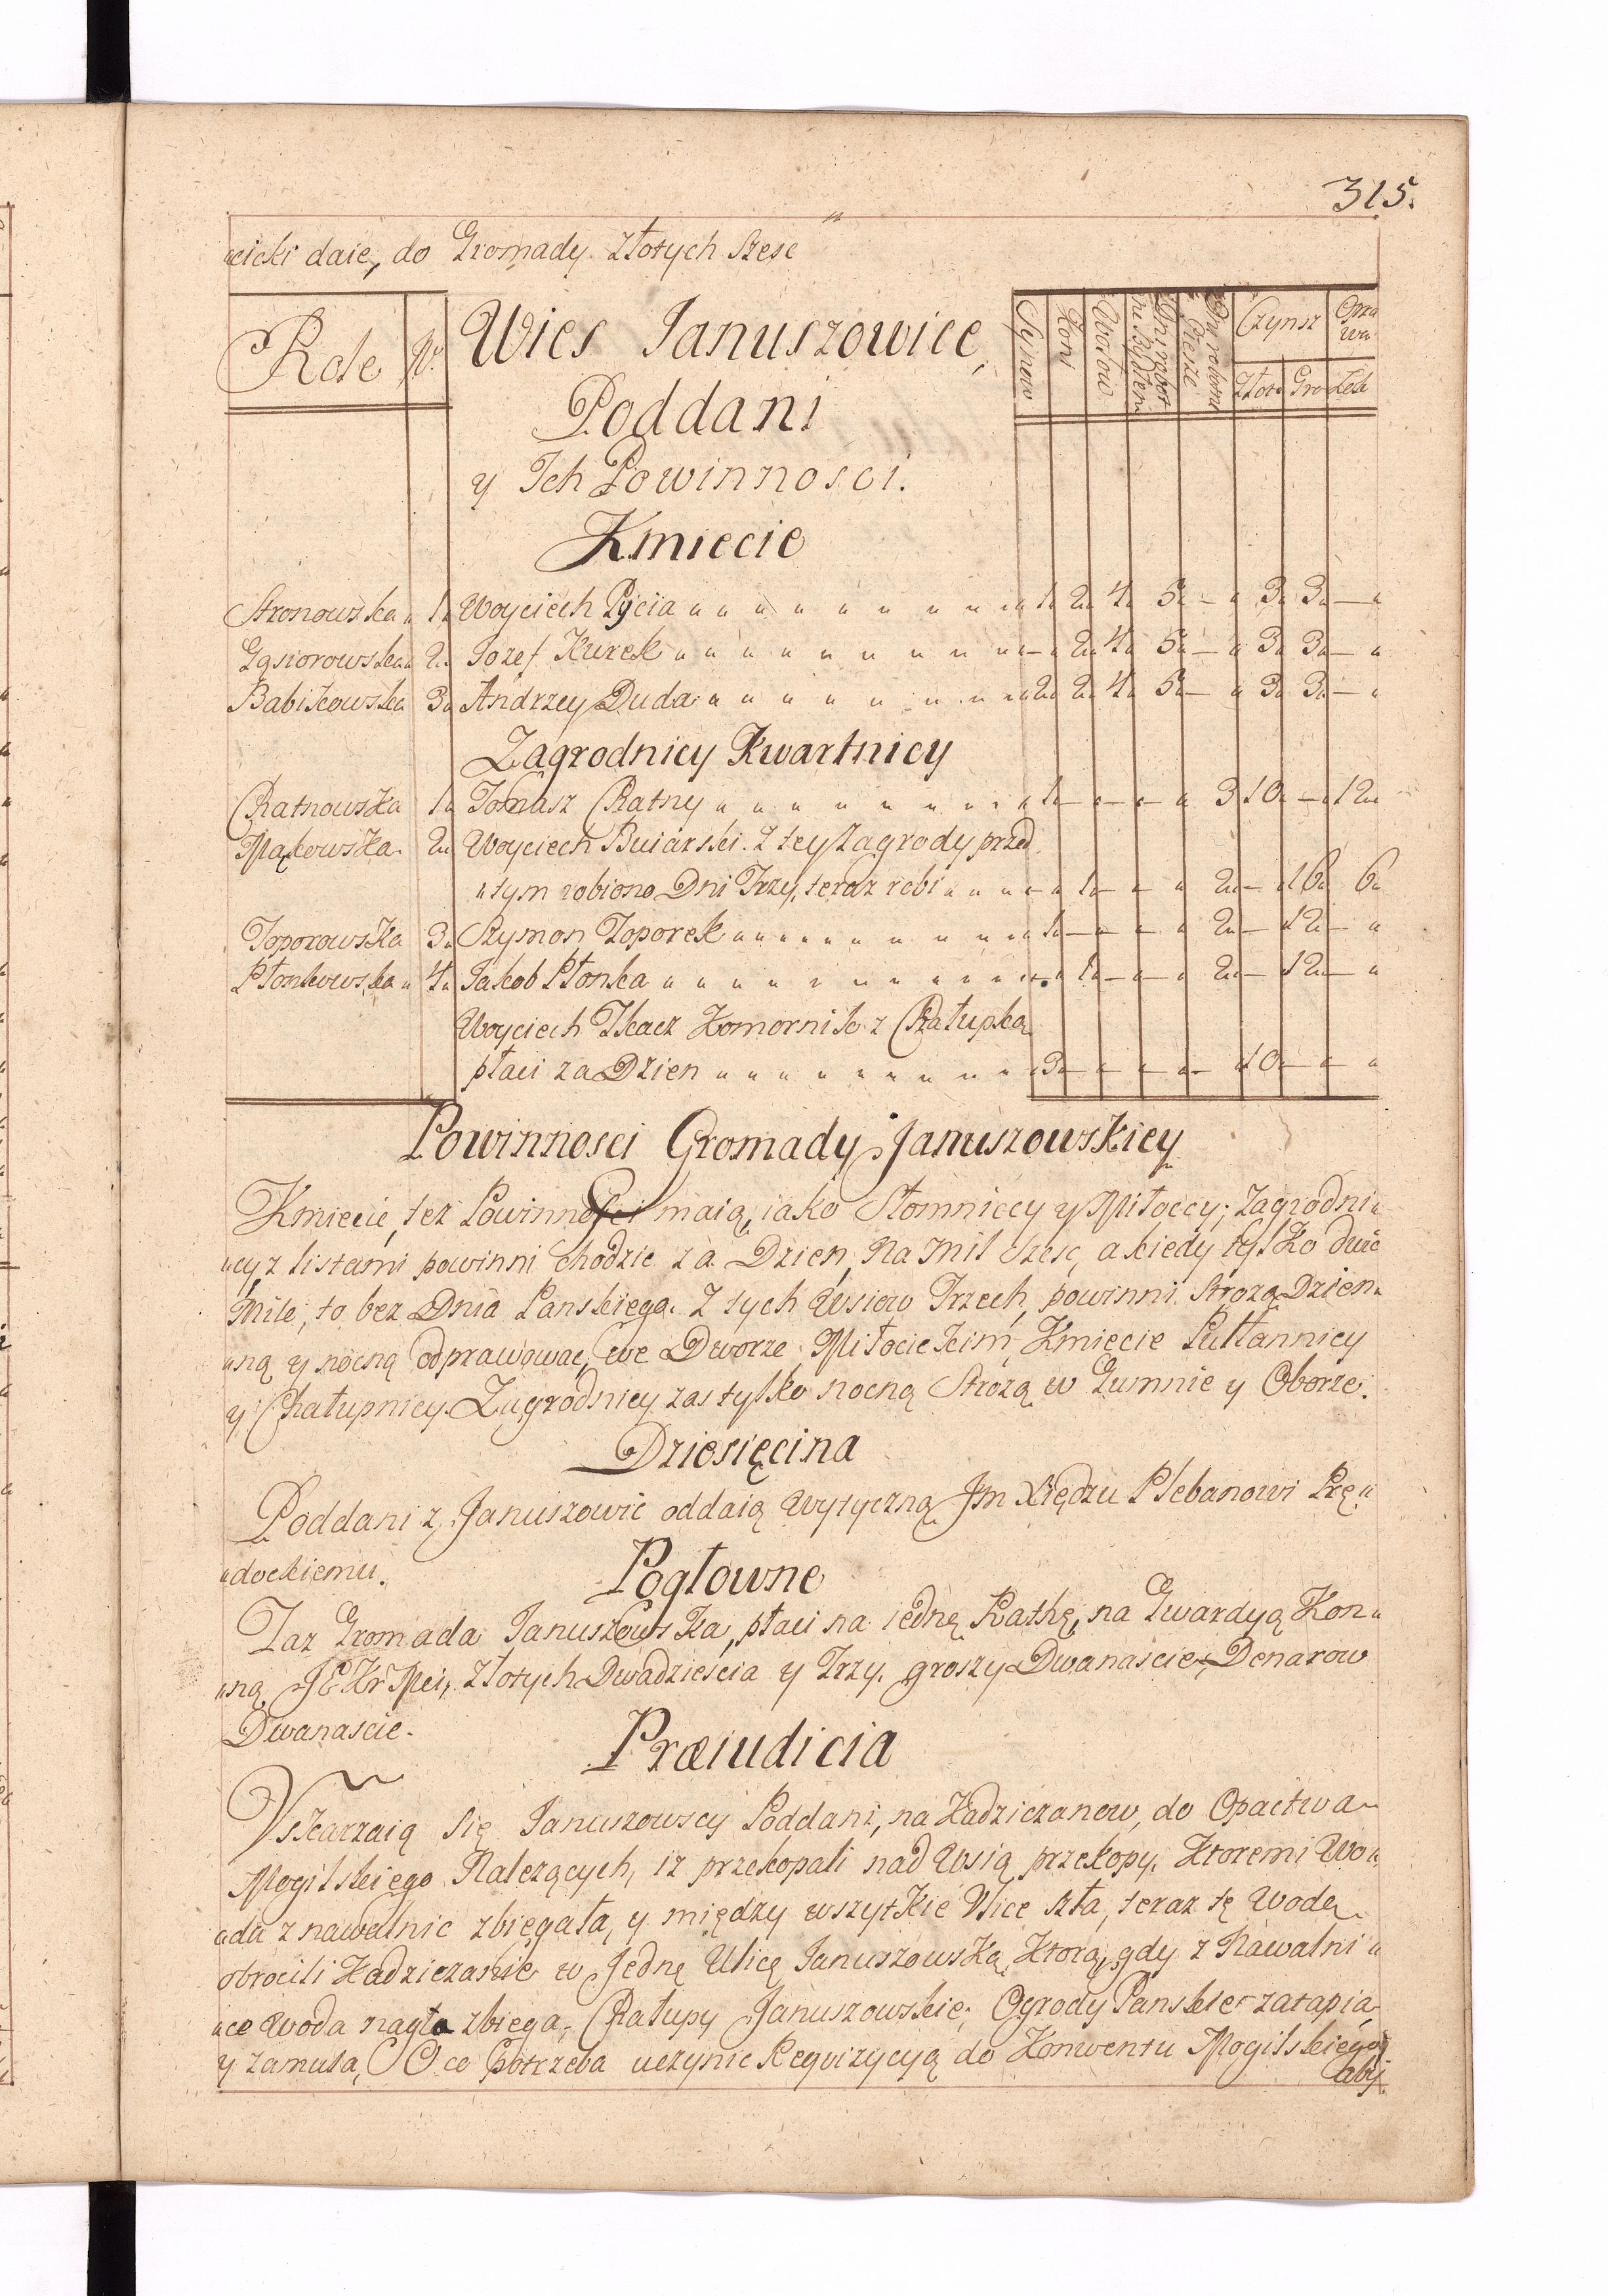 315.
"cicki daie, do Gromady Złotych szesc
Role N. Wies Januszowice, Synow Koni Wołow Dni robot na Bydłem Dni robotne Piesze Czynsz Oprawa
Złote Gro Łok
Poddani
y Ich Powinnosci.
Kmiecie
Stronowska " 1 " Woyciech Pycia " " " " " " " " " " 1 " 2 " 4 " 5 " — " 3 " 3 " — "
Gąsiorowska " 2 " Jozef Kurek " " " " " " " " " " — " 2 " 4 " 5 " — " 3 " 3 " — "
Babiłowska 3 " Andrzey Duda " " " " " " " " 2 " 2 " 4 " 5 " — " 3 " 3 " — "
Zagrodnicy Kwartnicy
Ratnowska 1 " Tomasz Ratny " " " " " " " " " 1 — " — " — " 3 10 " — " 12 "
Mąkowska 2 " Woyciech Buiarski. Z tey Zagrody przed
"tym robiono Dni Trzy, teraz robi " " " " " 1 — " — " 2 " — " 16 " 6 "
Toporowska 3 " Szymon Toporek " " " " " " " " " " 1 " — " — " 2 " — " 12 " — "
Płonkowska " 4 " Jakob Płonka " " " " " " " " " " " 1 " — " — " 2 " — " 12 " — "
Woyciech Tkacz Komornik z Chałupką
płaci za Dzien " " " " " " " " " " 3 — " — " — " — 10 " — " — "
Powinnosci Gromady Januszowskiey
Kmiecie, też Powinnosci maią, iako Słomniccy y Miłoccy; Zagrodni"
"cy z listami powinni chodzic za Dzien, na mil szesc, a kiedy tylko dwie
Mile, to bez Dnia Panskiego. Z tych Wsiow Trzech, powinni Strozą Dzien"
"ną y nocną odprawowac, we Dworze Miłocickim Kmiecie Pułłannicy
y Chałupnicy. Zagrodnicy zas tylko nocną Strozą w Gumnie y Oborze.
Dziesięcina
Poddani z Januszowic oddaią Wytyczną Jm Xiędzu Plebanowi Prę"
"dockiemu.
Pogłowne
Taz Gromada Januszowska, płaci na iednę Rathę, na Gwardyą Kon"
"ną JEKr Mci, Złotych Dwadziescia y Trzy, groszy Dwanascie, Denarow
Dwanascie.
Præiudicia
Vskarzaią się Januszowscy Poddani, na Kadziczanow, do Opactwa
Mogilskiego Nalezących, iz przekopali nad Wsią przekopy, Ktoremi Wo"
"da z nawalnic zbiegała, y między wszytkie Vlice szła, teraz tę Wodę
obrocili Kadziczanie w Jednę Ulicę Januszowską, Ktorą, gdy z Nawalni"
"ce Woda nagła zbiega, Chałupy Januszowskie, Ogrody Panskie zatapia
y zamula, O co potrzeba uczynic Reqvizycyą do Konwentu Mogilskiego
aby